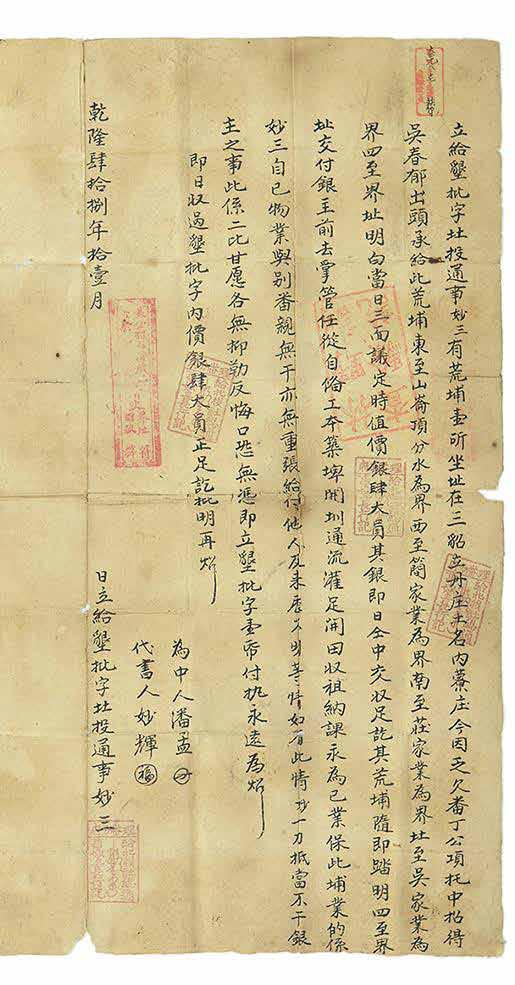 立給墾批字北投通事妙三有荒埔壹所坐址在三貂立丹庄土名內藔庄今因乏欠番丁公項托中招得
吳春郁出頭承給此荒埔東至山崙頂分水為界西至簡家業為界南至莊家業為界北至吳家業為
界四至界址明白當日三面議定時值價銀肆大員其銀即日仝中交收足訖其荒埔隨即踏明四至界
址交付銀主前去掌管任從自俻工本築埤開圳通流灌足開田收租納課永為己業保此埔業的係
妙三自己物業與別番親無干亦無重張給付他人及來歷不明等情如有此情妙一力抵當不干銀
主之事此係二比甘愿各無抑勒反悔口恐無憑即立墾批字壹帋付执永遠為炤
即日收過墾批字內價銀肆大員正足訖批明再炤
為中人潘孟
代書人妙輝
乾隆肆拾捌年拾壹月 日立給墾批字北投通事妙三